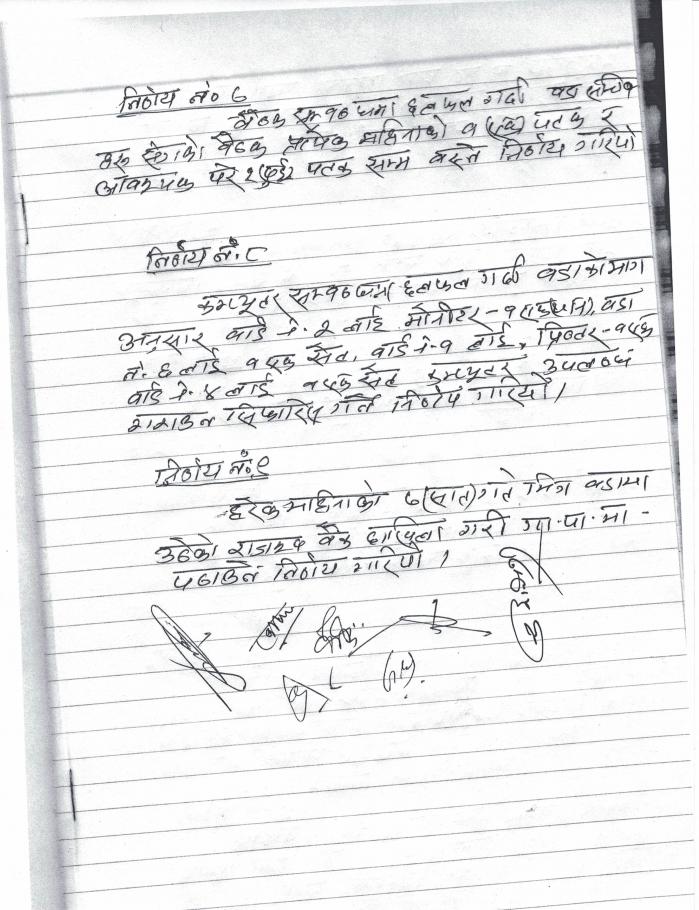 निर्णय नं० ७
बैठक सम्बन्धमा छलफल गर्दा पदाधिकारी
हरू बीचको बैठक प्रत्येक महिनाको १ (एक) पतक र
आवश्यक परे २ (दुई) पतक सम्म बस्ने निर्णय गरियो
निर्णय नं. ८
कम्प्यूटर सम्बन्धमा छलफल गर्दा वडाको माग
अनुसार वार्ड नं. २ लाई मोनीटर - १ (एक), वडा
नं. ६ लाई १ एक सेट, वार्ड नं. १ लाई, प्रिन्टर - १ एक
वार्ड नं. ४ लाई १ एक सेट कम्प्यूटर उपलब्ध
गराउन सिफारिस गर्ने निर्णय गरियो।
निर्णय नं. ९
हरेक महिनाको ७ (सात) गते भित्र वडामा
उठेको राजश्व बैंक दाखिला गरी गा.पा. मा -
पठाउने निर्णय गरियो ।